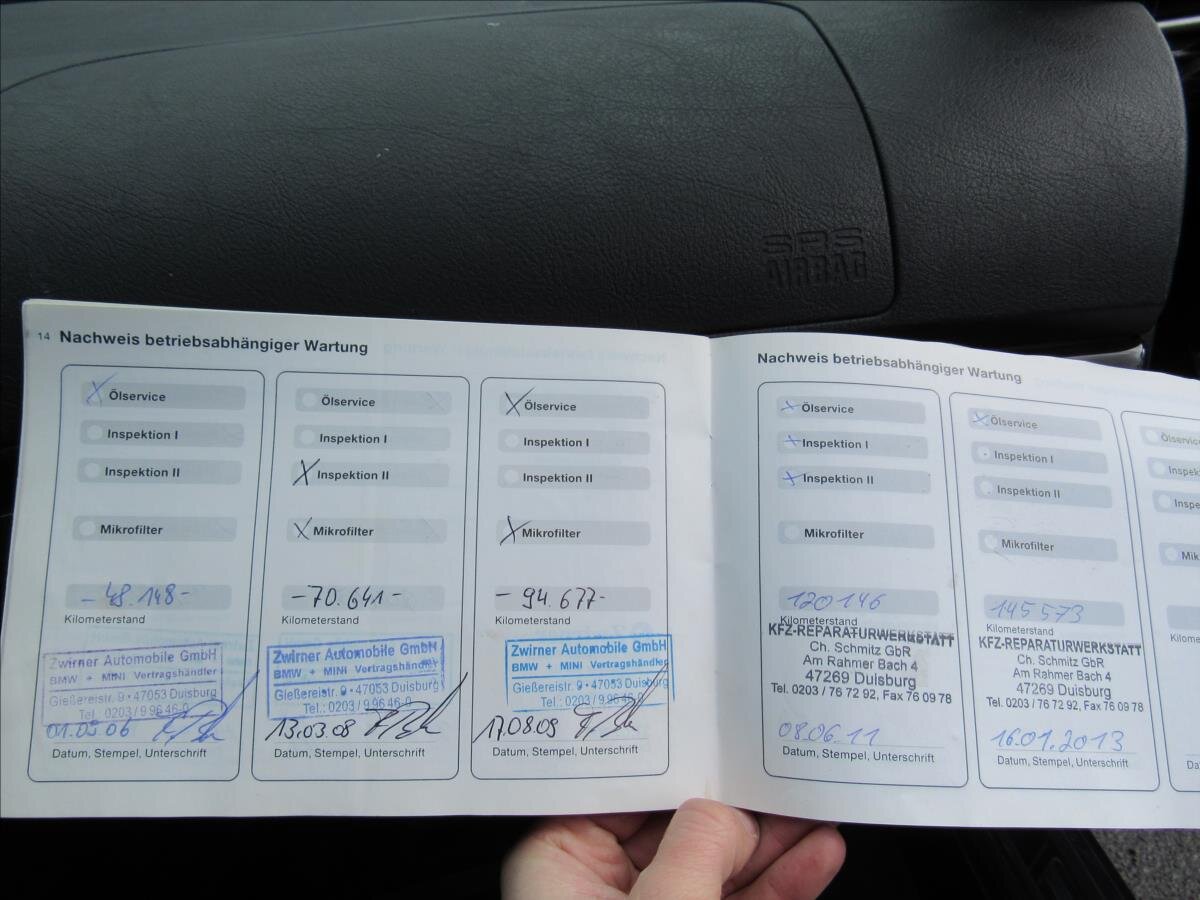 SRS
AIRBAG
14 Nachweis betriebsabhängiger Wartung
X Ölservice
Inspektion I
Inspektion II
Mikrofilter
- 48.148 -
Kilometerstand
Zwirner Automobile GmbH
BMW + MINI Vertragshändler
Gießereistr. 9 • 47053 Duisburg
Tel. 0203 / 9 96 46-0
Datum, Stempel, Unterschrift
Ölservice
Inspektion I
X Inspektion II
X Mikrofilter
- 70.641 -
Kilometerstand
Zwirner Automobile GmbH
BMW + MINI Vertragshändler
Gießereistr. 9 • 47053 Duisburg
Tel.: 0203 / 9 96 46-0
13.03.08
Datum, Stempel, Unterschrift
X Ölservice
Inspektion I
Inspektion II
X Mikrofilter
- 94.677 -
Kilometerstand
Zwirner Automobile GmbH
BMW + MINI Vertragshändler
Gießereistr. 9 • 47053 Duisburg
Tel.: 0203 / 9 96 46-0
17.08.09
Datum, Stempel, Unterschrift
Nachweis betriebsabhängiger Wartung
X Ölservice
X Inspektion I
X Inspektion II
Mikrofilter
120146
Kilometerstand
KFZ-REPARATURWERKSTATT
Ch. Schmitz GbR
Am Rahmer Bach 4
47269 Duisburg
Tel. 0203 / 76 72 92, Fax 76 09 78
08.06.11
Datum, Stempel, Unterschrift
X Ölservice
Inspektion I
Inspektion II
Mikrofilter
145573
Kilometerstand
KFZ-REPARATURWERKSTATT
Ch. Schmitz GbR
Am Rahmer Bach 4
47269 Duisburg
Tel. 0203 / 76 72 92, Fax 76 09 78
16.01.2013
Datum, Stempel, Unterschrift
Ölservic
Inspek
Inspe
Mik
Kilome
Da